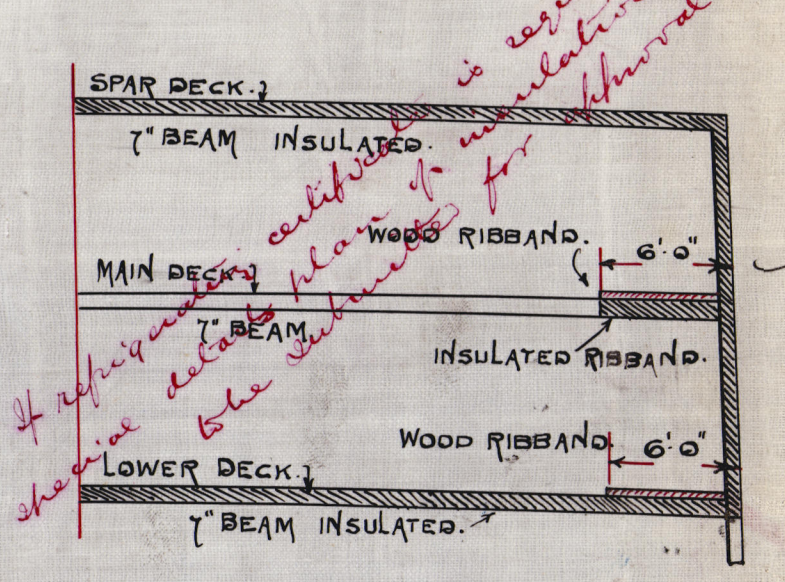 SPAR DECK.
7" BEAM INSULATED.
WOOD RIBBAND.
6'·0"
MAIN DECK
7" BEAM
INSULATED RIBBAND.
WOOD RIBBAND.
6'·0"
LOWER DECK.
7" BEAM INSULATED.
If refrigerating certificate is
special details plan of insulation
to be submitted for approval